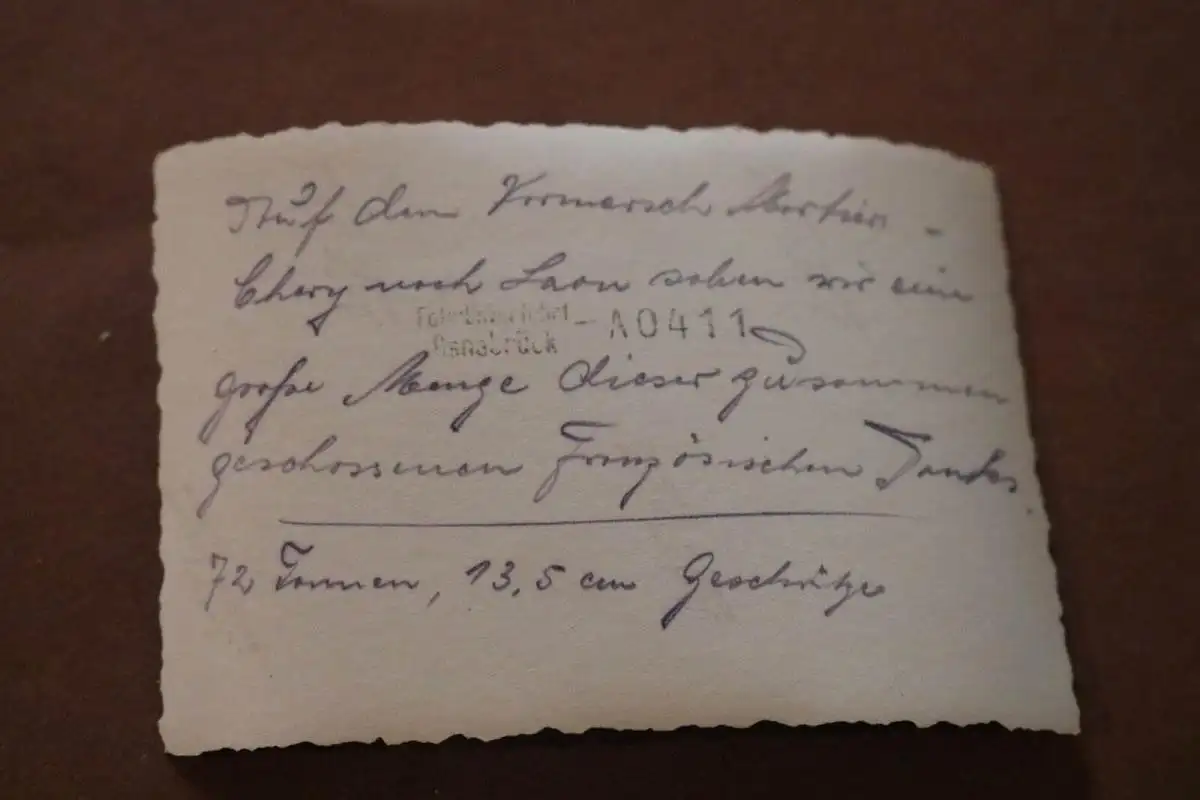 Auf dem Vormarsch Mortiers -
Chery nach Laon sahen wir eine
Osnabrück - A0411
große Menge dieser zusammen
geschossenen Französischen Tanks.
72 Tonnen, 13,5 cm Geschütze